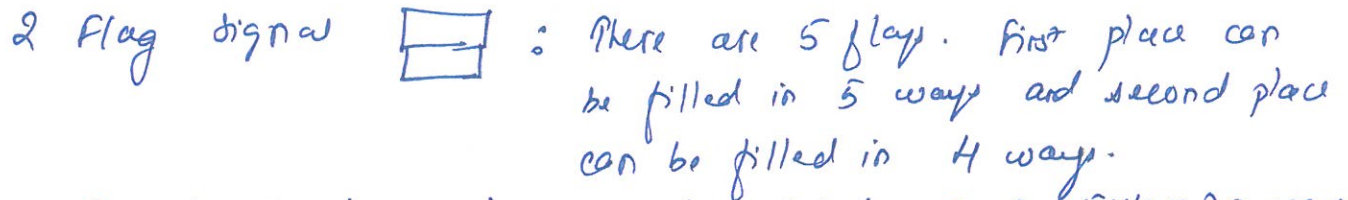 2 Flag signal : There are 5 flags. First place can
be filled in 5 ways and second place
can be filled in 4 ways.